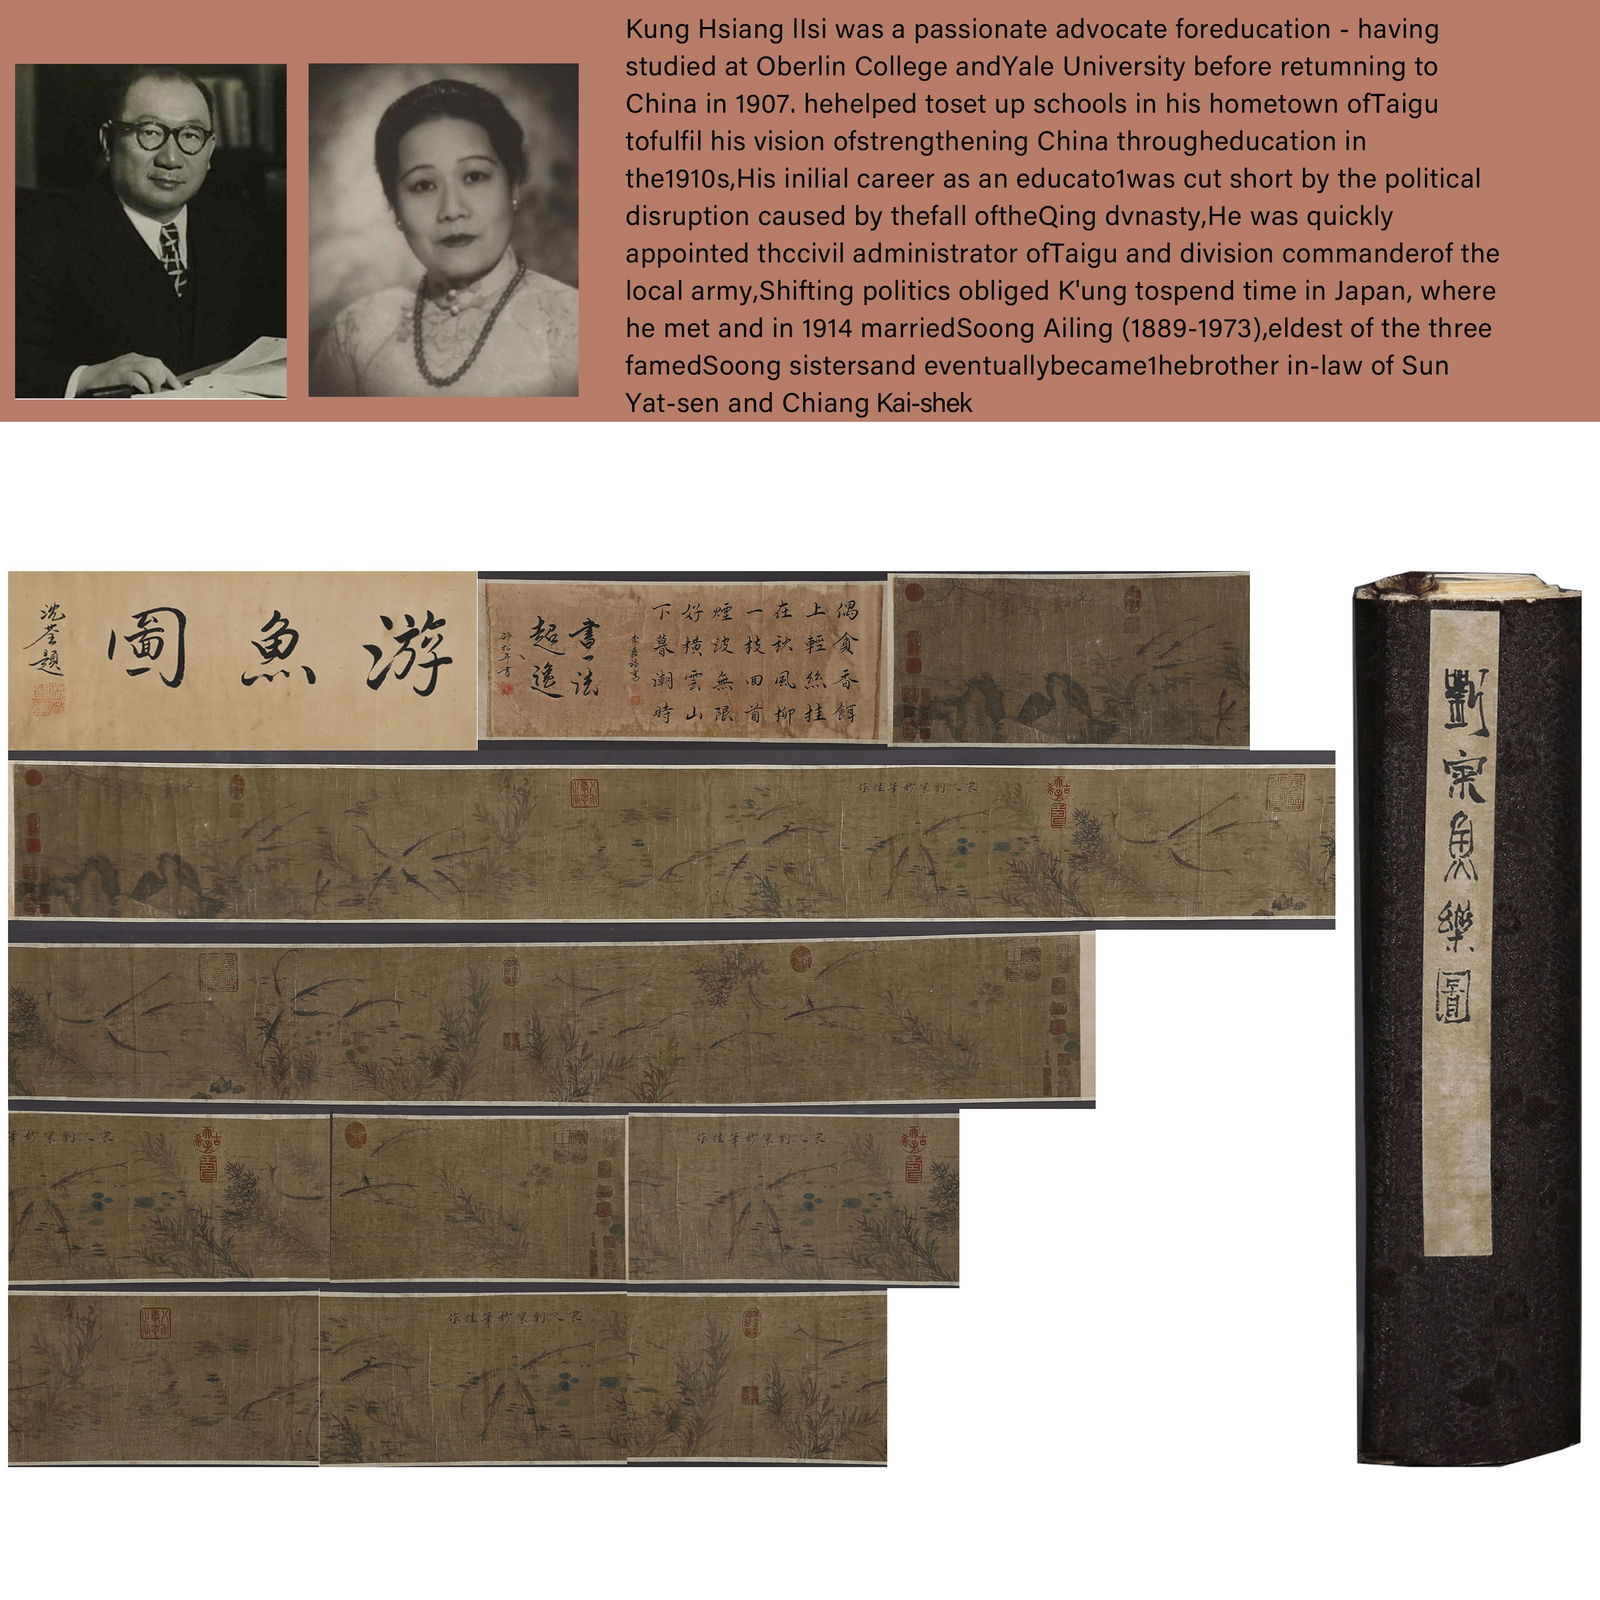 Kung Hsiang lIsi was a passionate advocate foreducation - having
studied at Oberlin College andYale University before retumning to
China in 1907. hehelped toset up schools in his hometown ofTaigu
tofulfil his vision ofstrengthening China througheducation in
the1910s,His inilial career as an educato1was cut short by the political
disruption caused by thefall oftheQing dvnasty,He was quickly
appointed thccivil administrator ofTaigu and division commanderof the
local army,Shifting politics obliged K'ung tospend time in Japan, where
he met and in 1914 marriedSoong Ailing (1889-1973),eldest of the three
famedSoong sistersand eventuallybecame1hebrother in-law of Sun
Yat-sen and Chiang Kai-shek
游魚圖
沈荃題
偶貪香餌
上輕絲挂
在秋風柳
一枝回首
煙波無限
好橫雲山
下暮潮時
書法
超逸
宋人劉寀妙筆佳作
宋人劉寀妙筆佳作
宋人劉寀妙筆佳作
劉寀魚樂圖